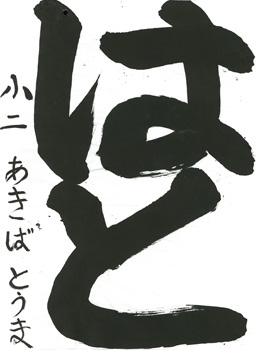 はと
小二 あきば とうま